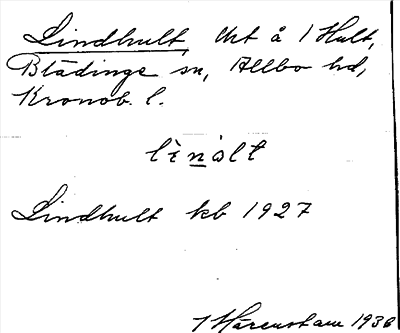 Lindhult, tht å 1 Hult,
Blädinge sn, Allbo hd,
Kronob. l.
lìnált
Lindhult kb 1927
Härenstam 1936